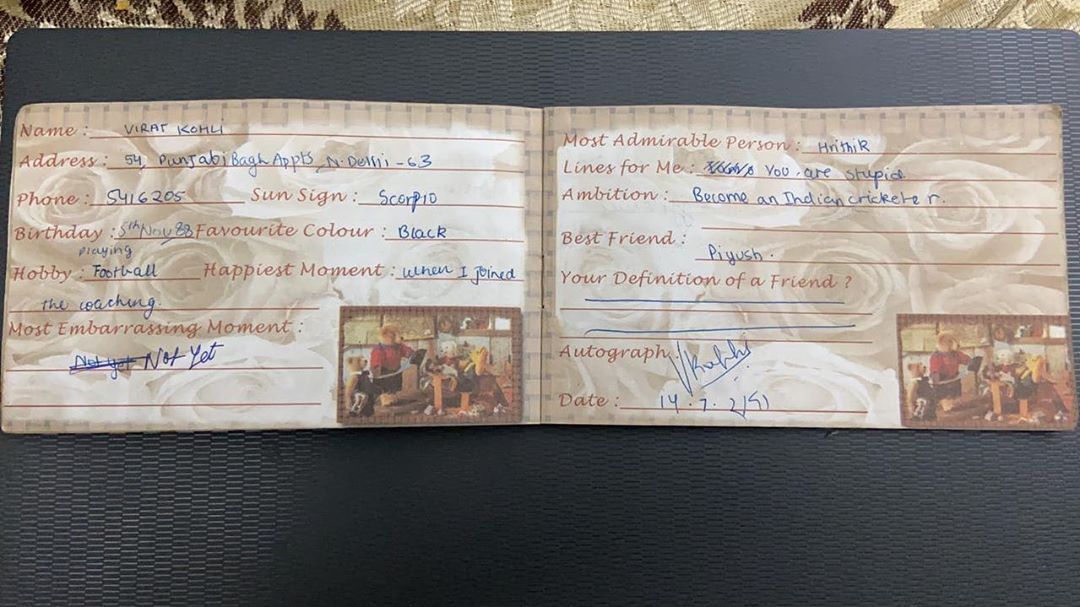 Name : VIRAT KOHLI
Address : 54, Punjabi Bagh Appts, N. Delhi - 63
Phone : 5416205 Sun Sign : Scorpio
Birthday : 5th Nov, 88 Favourite Colour : Black
playing
Hobby : Football Happiest Moment : when I joined
the coaching.
Most Embarrassing Moment :
Not yet Not Yet
Most Admirable Person : Hrithik
Lines for Me : You are stupid
Ambition : Become an Indian cricketer.
Best Friend :
Piyush.
Your Definition of a Friend ?
Autograph :
Date : 14.7.